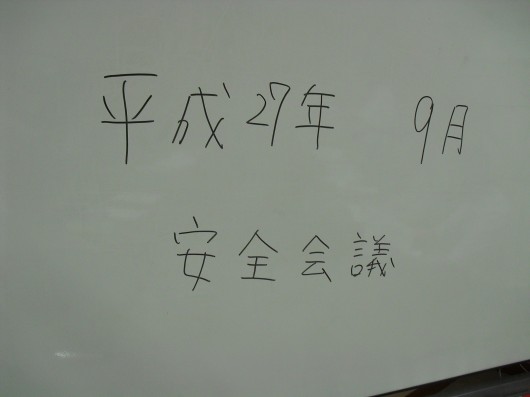 平成27年 9月
安全会議